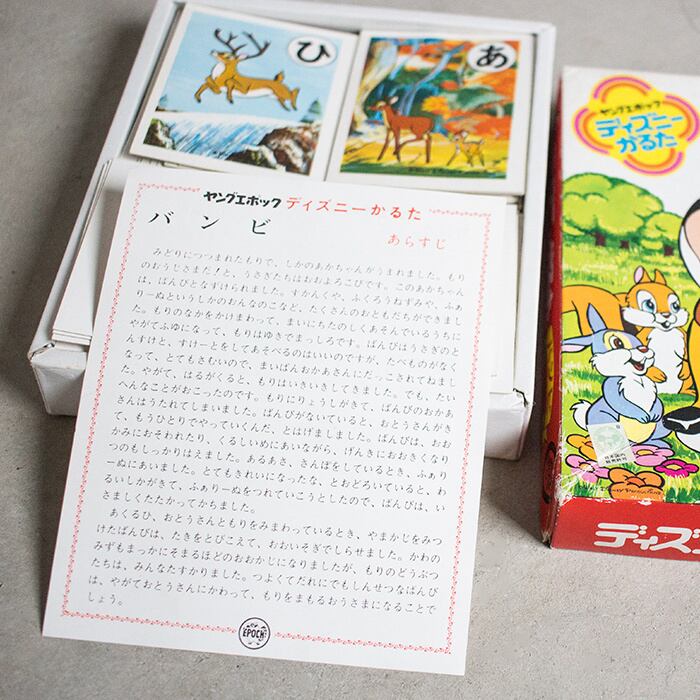 ひ
あ
ヤングエポック
ディズニー
かるた
ヤングエポック ディズニーかるた
バンビ
あらすじ
みどりにつつまれたもりで、しかのあかちゃんがうまれました。もり
のおうじさまだ!と、うさぎたちはおおよろこびです。このあかちゃん
は、ばんびとなずけられました。すかんくや、ふくろうねずみや、ふぁ
りーぬというしかのおんなのこなど、たくさんのおともだちができまし
た。もりのなかをかけまわって、まいにちたのしくあそんでいるうちに
やがてふゆになって、もりはゆきでまっしろです。ばんびはうさぎのと
んすけと、すけーとをしてあそべるのはいいのですが、たべものがなく
なって、とてもさむいので、まいばんおかあさんにだっこされてねまし
た。やがて、はるがくると、もりはいきいきしてきました。でも、たい
へんなことがおこったのです。もりにりょうしがきて、ばんびのおかあ
さんはうたれてしまいました。ばんびがないていると、おとうさんがき
て、もうひとりでやっていくんだ、とはげましました。ばんびは、おお
かみにおそわれたり、くるしいめにあいながら、げんきにおおきくなり
つのもしっかりはえました。あるあさ、さんぽをしているとき、ふぁり
ーぬにあいました。とてもきれいになったな、とおどろいていると、わ
るいしかがきて、ふぁりーぬをつれていこうとしたので、ばんびは、い
さましくたたかってかちました。
あくるひ、おとうさんともりをみまわっているとき、やまかじをみつ
けたばんびは、たきをとびこえて、おおいそぎでしらせました。かわの
みずもまっかにそまるほどのおおかじになりましたが、もりのどうぶつ
たちは、みんなたすかりました。つよくてだれにでもしんせつなばんび
は、やがておとうさんにかわって、もりをまもるおうさまになることで
しょう。
EPOCH
ディズ